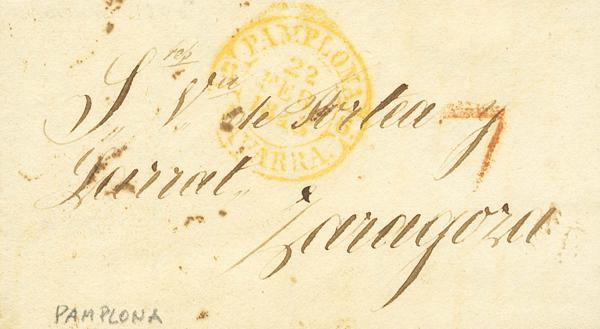 PAMPLONA
22
NAVARRA.
S.res V.da de Orlea y
Larral.
Zaragoza
7
PAMPLONA